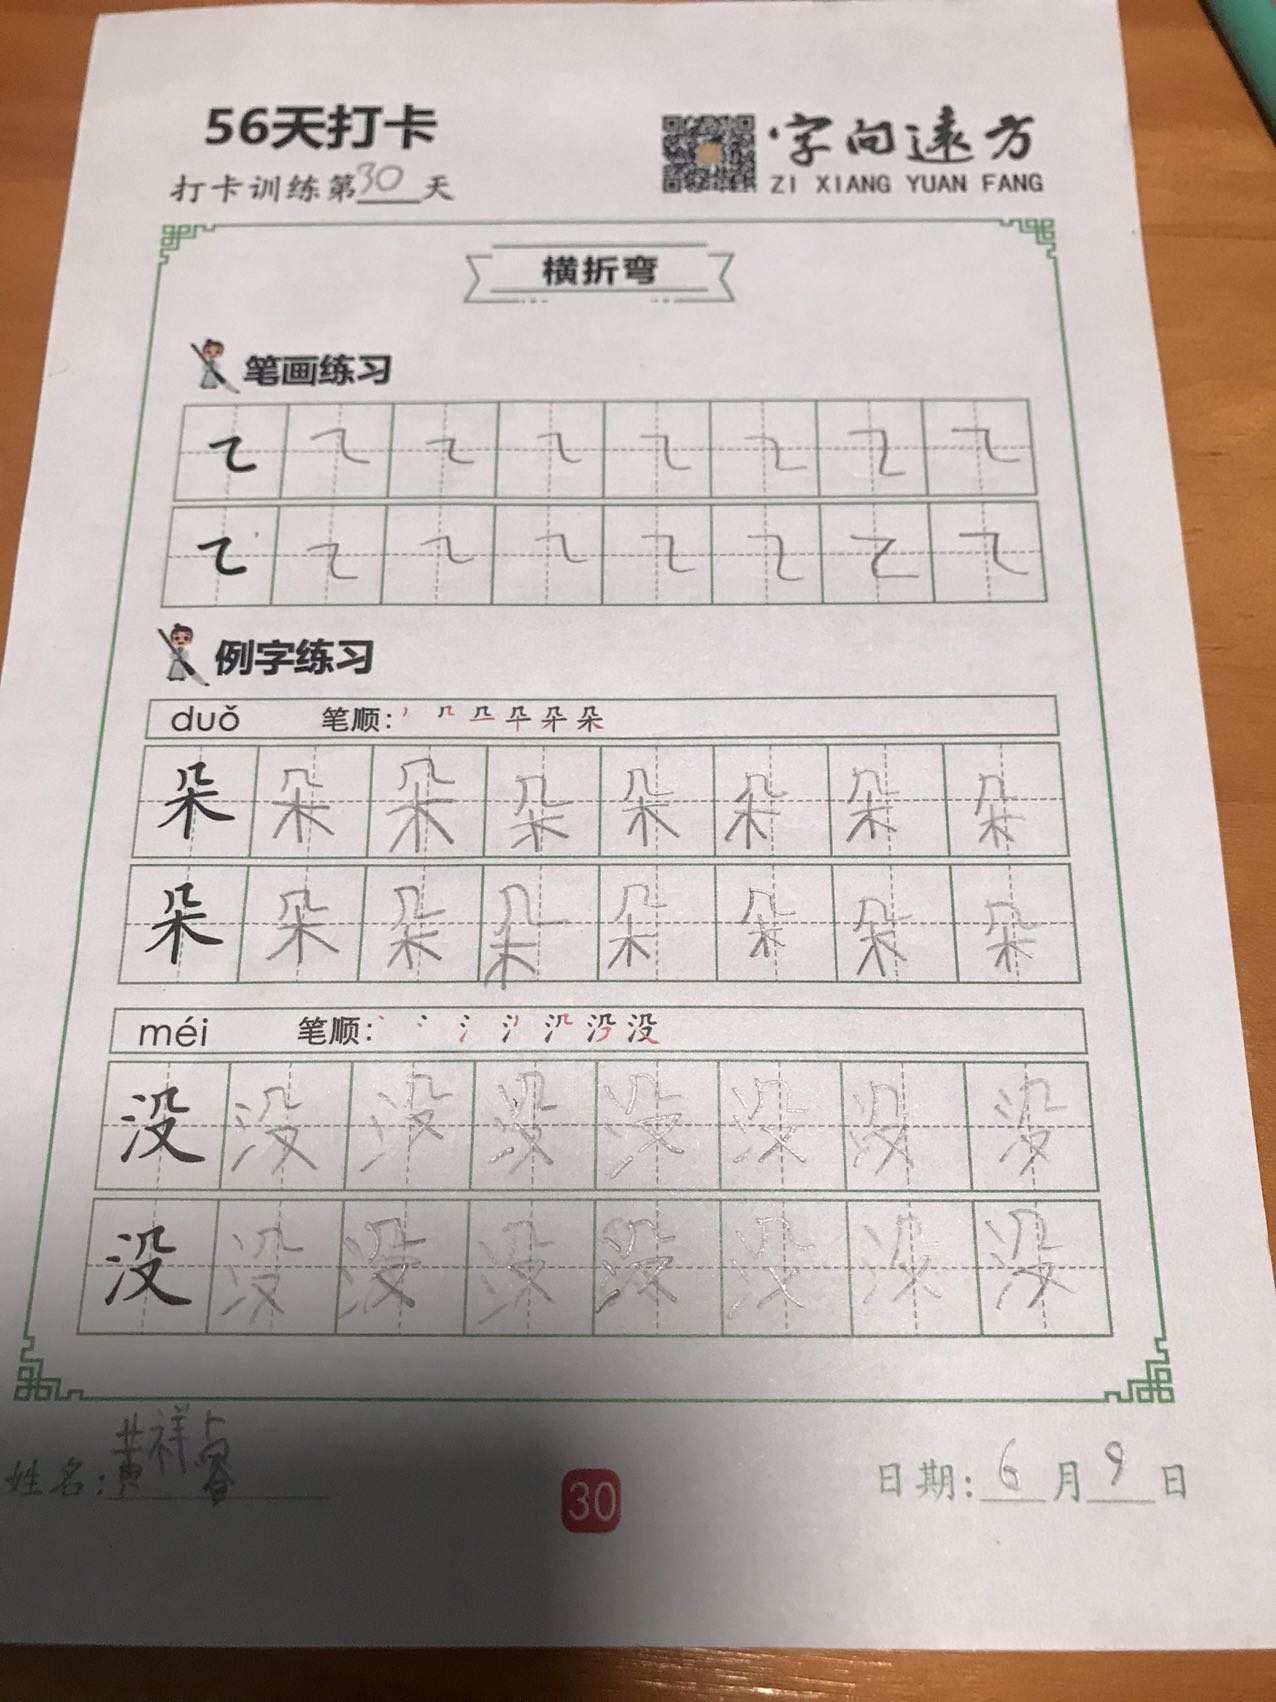 56天打卡
字向远方
ZI XIANG YUAN FANG
打卡训练第30天
横折弯
笔画练习
例字练习
duǒ 笔顺：
朵 朵 朵 朵 朵 朵 朵 朵
朵 朵 朵 朵 朵 朵 朵 朵
méi 笔顺：
没 没 没 没 没 没 没 没
没 没 没 没 没 没 没 没
姓名：黄祥睿
30
日期：6月9日